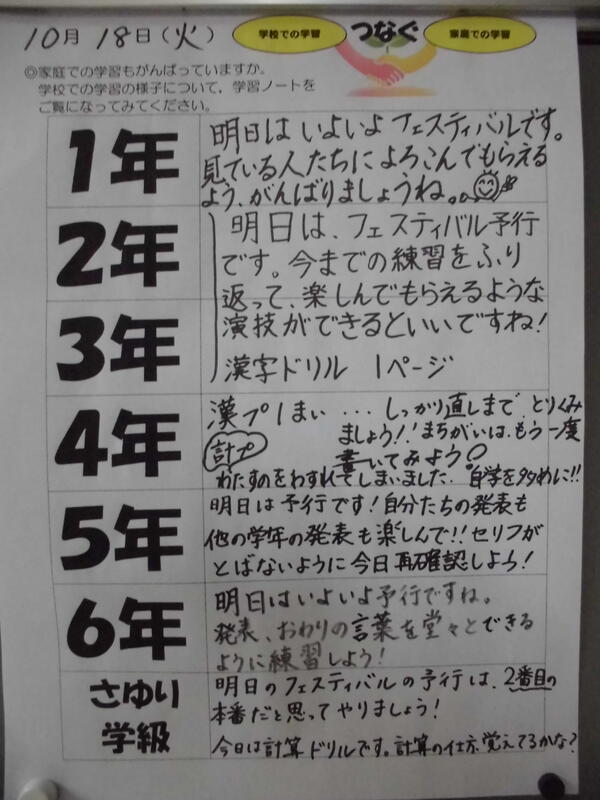 10月 18日（火）
学校での学習 つなぐ 家庭での学習
◎家庭での学習もがんばっていますか。
学校での学習の様子について，学習ノートを
ご覧になってみてください。
1年
明日はいよいよフェスティバルです。
見ている人たちによろこんでもらえる
よう、がんばりましょうね。
2年
3年
明日は、フェスティバル予行
です。今までの練習をふり
返って、楽しんでもらえるような
演技ができるといいですね！
漢字ドリル 1ページ
4年
漢プ1まい … しっかり直しまで とりくみ
ましょう！！まちがいは、もう一度
計プ 書いてみよう！
わたすのをわすれてしまいました. 自学を多めに!!
5年
明日は予行です！自分たちの発表も
他の学年の発表も楽しんで!!セリフが
とばないように今日再確認しよう！
6年
明日はいよいよ予行ですね。
発表、おわりの言葉を堂々とできる
ように練習しよう！
さゆり
学級
明日のフェスティバルの予行は、2番目の
本番だと思ってやりましょう！
今日は計算ドリルです。計算の仕方覚えてるかな？